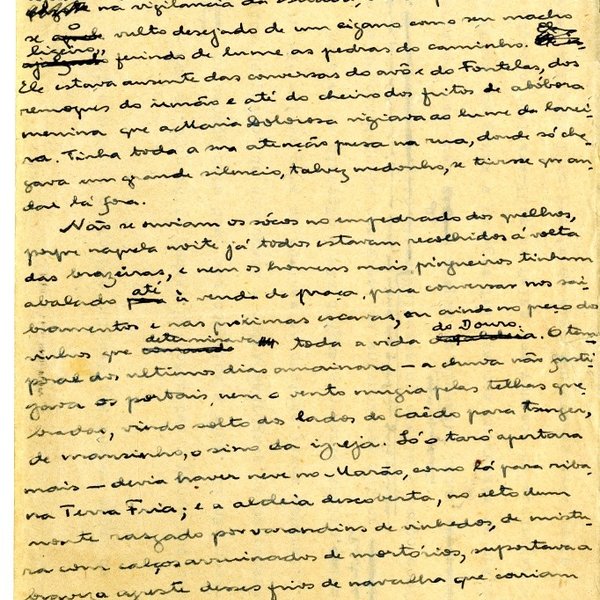 na vigilancia da
se o vulto desejado de um cigano com o seu macho
ligeiro, ferindo de lume as pedras do caminho.
Ele estava ausente das conversas do avô e do Fontelas, dos
remoques do irmão e até do cheiro dos fritos de abóbora
menina que a Maria Dolorosa vigiava ao lume da larei-
ra. Tinha toda a sua atenção presa na rua, donde só che-
gava um grande silencio, talvez medonho, se tivesse que an-
dar lá fóra.
Não se ouviam os sócos no empedrado dos quelhos,
porque naquela noite já todos estavam recolhidos á volta
das brazeiras, e nem os homens mais pingueiros tinham
abalado até à venda da praça para conversar nos sai-
bramentos e nas próximas escavas, ou ainda no preço dos
vinhos que determinava toda a vida do Douro. O tem-
poral dos ultimos dias amainara — a chuva não fusti-
gava os portais, nem o vento mugia pelas telhas que-
bradas, vindo solto dos lados do Caêdo para tanger,
de mansinho, o sino da igreja. Só o taró apertara
mais — devia haver neve no Marão, como lá para riba
na Terra Fria; e a aldeia descoberta, no alto dum
monte rasgado por varandins de vinhedos, de mistu-
ra com calços arruinados de mortórios, suportava a
braveza agreste desses frios de navalha que corriam